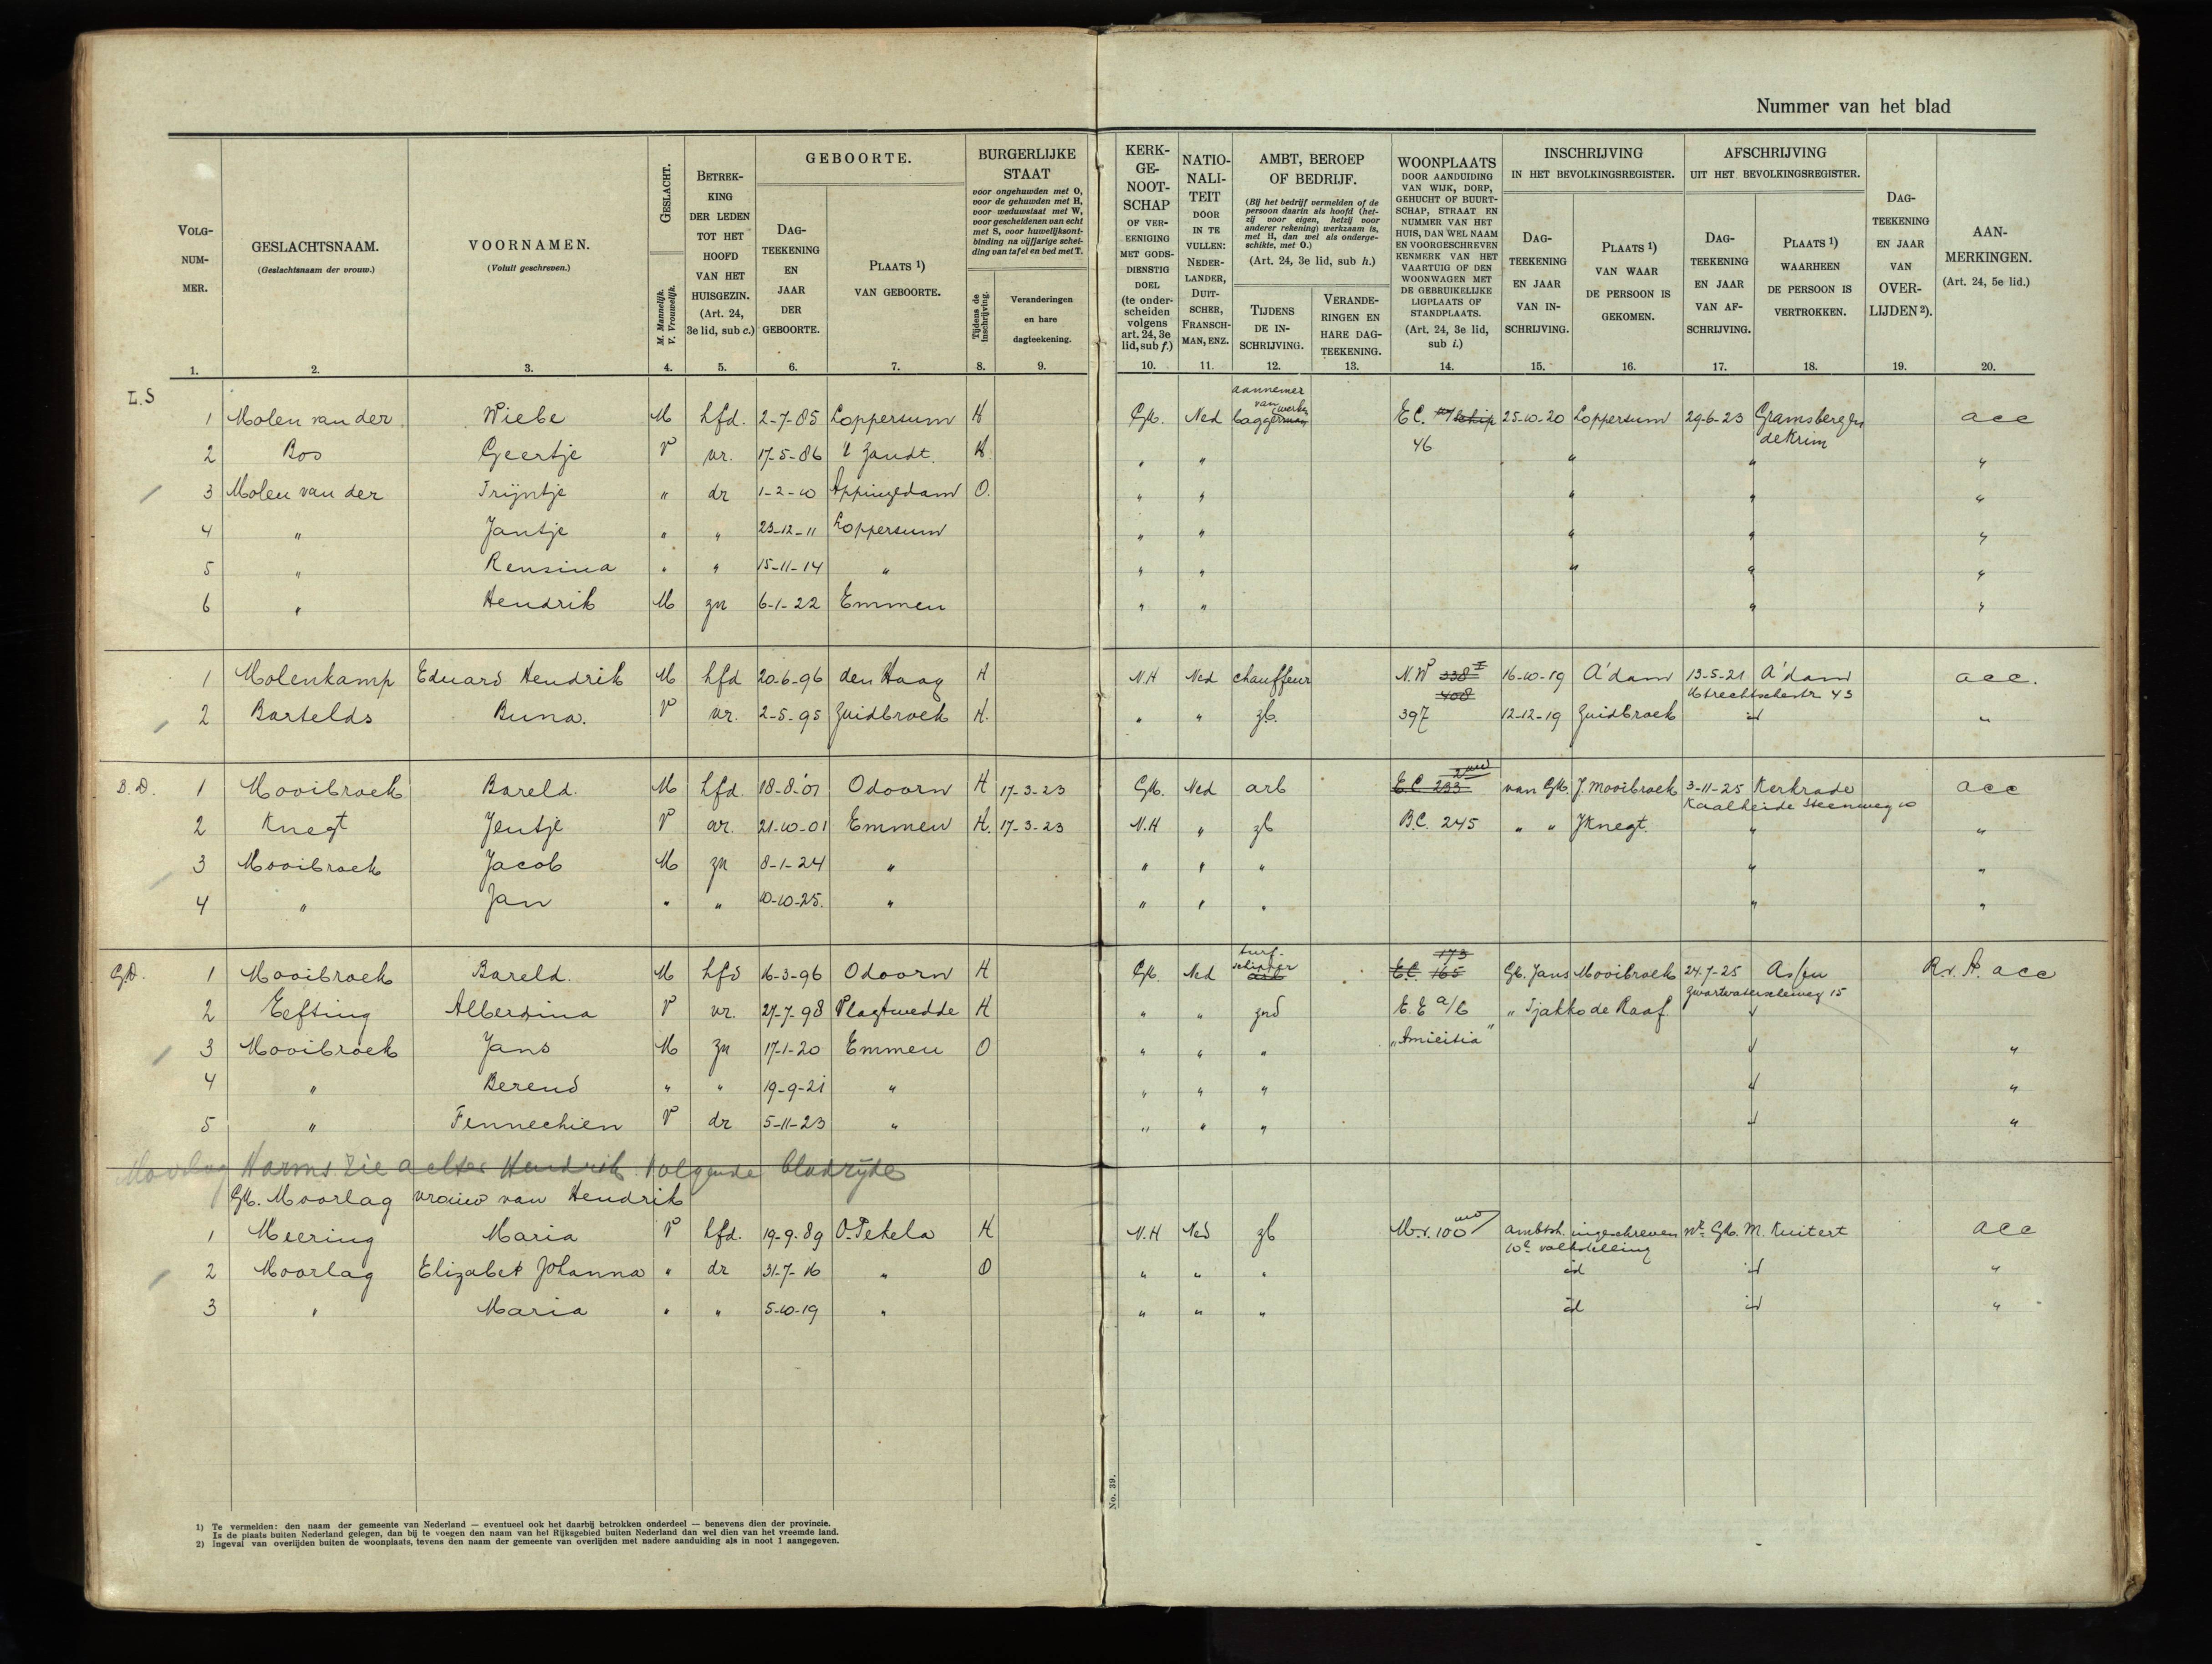 Nummer van het blad
VOLG-NUM-MER. 1.
GESLACHTSNAAM. (Geslachtsnaam der vrouw.) 2.
VOORNAMEN. (Voluit geschreven.) 3.
GESLACHT. M. Mannelijk. V. Vrouwelijk. 4.
BETREK-KING DER LEDEN TOT HET HOOFD VAN HET HUISGEZIN. (Art. 24, 3e lid, sub c.) 5.
GEBOORTE.
DAG-TEEKENING EN JAAR DER GEBOORTE. 6.
PLAATS 1) VAN GEBOORTE. 7.
BURGERLIJKE STAAT
voor ongehuwden met O, voor de gehuwden met H, voor weduwstaat met W, voor gescheidenen van echt met S, voor huwelijksont-binding na vijfjarige schei-ding van tafel en bed met T.
Tijdens de inschrijving. 8.
Veranderingen en hare dagteekening. 9.
KERK-GE-NOOT-SCHAP OF VER-EENIGING MET GODS-DIENSTIG DOEL (te onder-scheiden volgens art. 24, 3e lid, sub f.) 10.
NATIO-NALI-TEIT DOOR IN TE VULLEN: NEDER-LANDER, DUIT-SCHER, FRANSCH-MAN, ENZ. 11.
AMBT, BEROEP OF BEDRIJF.
(Bij het bedrijf vermelden of de persoon daarin als hoofd (het-zij voor eigen, hetzij voor anderer rekening) werkzaam is, met H, dan wel als onderge-schikte, met O.)
(Art. 24, 3e lid, sub h.)
TIJDENS DE IN-SCHRIJVING. 12.
VERANDE-RINGEN EN HARE DAG-TEEKENING. 13.
WOONPLAATS DOOR AANDUIDING VAN WIJK, DORP, GEHUCHT OF BUURT-SCHAP, STRAAT EN NUMMER VAN HET HUIS, DAN WEL NAAM EN VOORGESCHREVEN KENMERK VAN HET VAARTUIG OF DEN WOONWAGEN MET DE GEBRUIKELIJKE LIGPLAATS OF STANDPLAATS. (Art. 24, 3e lid, sub i.) 14.
INSCHRIJVING IN HET BEVOLKINGSREGISTER.
DAG-TEEKENING EN JAAR VAN IN-SCHRIJVING. 15.
PLAATS 1) VAN WAAR DE PERSOON IS GEKOMEN. 16.
AFSCHRIJVING UIT HET BEVOLKINGSREGISTER.
DAG-TEEKENING EN JAAR VAN AF-SCHRIJVING. 17.
PLAATS 1) WAARHEEN DE PERSOON IS VERTROKKEN. 18.
DAG-TEEKENING EN JAAR VAN OVER-LIJDEN 2). 19.
AAN-MERKINGEN. (Art. 24, 5e lid.) 20.
L.S
1 Molen van der Wiebe M hfd. 2-7-85 Loppersum H GK. Ned aannemer van baggerwerken E.C. schip 25-10-20 Loppersum 29-6-23 Gramsbergen acc
2 Bos Geertje V vr. 17-5-86 't Zandt. H " " 46 " " de Krim "
3 Molen van der Trijntje " dr 1-2-10 Appingedam O. " " " " "
4 " Jantje " " 23-12-11 Loppersum " " " " "
5 " Rensina " " 15-11-14 " " " " " "
6 " Hendrik M zn 6-1-22 Emmen " " " "
1 Molenkamp Eduard Hendrik M hfd 20-6-96 den Haag H N.H Ned chauffeur N.W 338 II 408 16-10-19 A'dam 13-5-21 A'dam acc.
Utrechtschestr 43
2 Bartelds Buna. V vr. 2-5-95 Zuidbroek H. " " zb. 397 12-12-19 Zuidbroek id "
B.D. 1 Mooibroek Bareld. M hfd. 18-8-'01 Odoorn H 17-3-23 GK. Ned arb E.C. 233 van GK. J. Mooibroek 3-11-25 Kerkrade acc
Kaalheide Steenweg 10
2 Knegt Jentje V vr. 21-10-01 Emmen H. 17-3-23 N.H " zb B.C. 245 " " J Knegt. " "
3 Mooibroek Jacob M zn 8-1-24 " " " " " "
4 " Jan " " 10-10-25. " " " " " "
G.D. 1 Mooibroek Bareld. M hfd 16-3-96 Odoorn H GK. Ned turfschipper arb E.C. 165 173 GK. Jans Mooibroek 24-7-25 Assen R.v.A. acc
Zwartwaterscheweg 15
2 Eefting Alberdina V vr. 27-7-98 Vlagtwedde H " " znd E.E a/b " Tjakko de Raaf "
3 Mooibroek Jans M zn 17-1-20 Emmen O " " " "Amicitia" " "
4 " Berend " " 19-9-21 " " " " " "
5 " Fennechien V dr 5-11-23 " " " " " "
Moorlag Harms Zie achter Hendrik volgende bladzijde
GK. Moorlag vrouw van Hendrik
1 Meering Maria V hfd. 19-9-89 O. Pekela H N.H Ned zb M.v. 100 ambtsh. ingeschreven 10e volkstelling GK. M. Kuitert acc
2 Moorlag Elizabet Johanna " dr 31-7-16 " O " " " id id "
3 " Maria " " 5-10-19 " " " " id id "
No. 39.
1) Te vermelden: den naam der gemeente van Nederland — eventueel ook het daarbij betrokken onderdeel — benevens dien der provincie.
Is de plaats buiten Nederland gelegen, dan bij te voegen den naam van het Rijksgebied buiten Nederland dan wel dien van het vreemde land.
2) Ingeval van overlijden buiten de woonplaats, tevens den naam der gemeente van overlijden met nadere aanduiding als in noot 1 aangegeven.